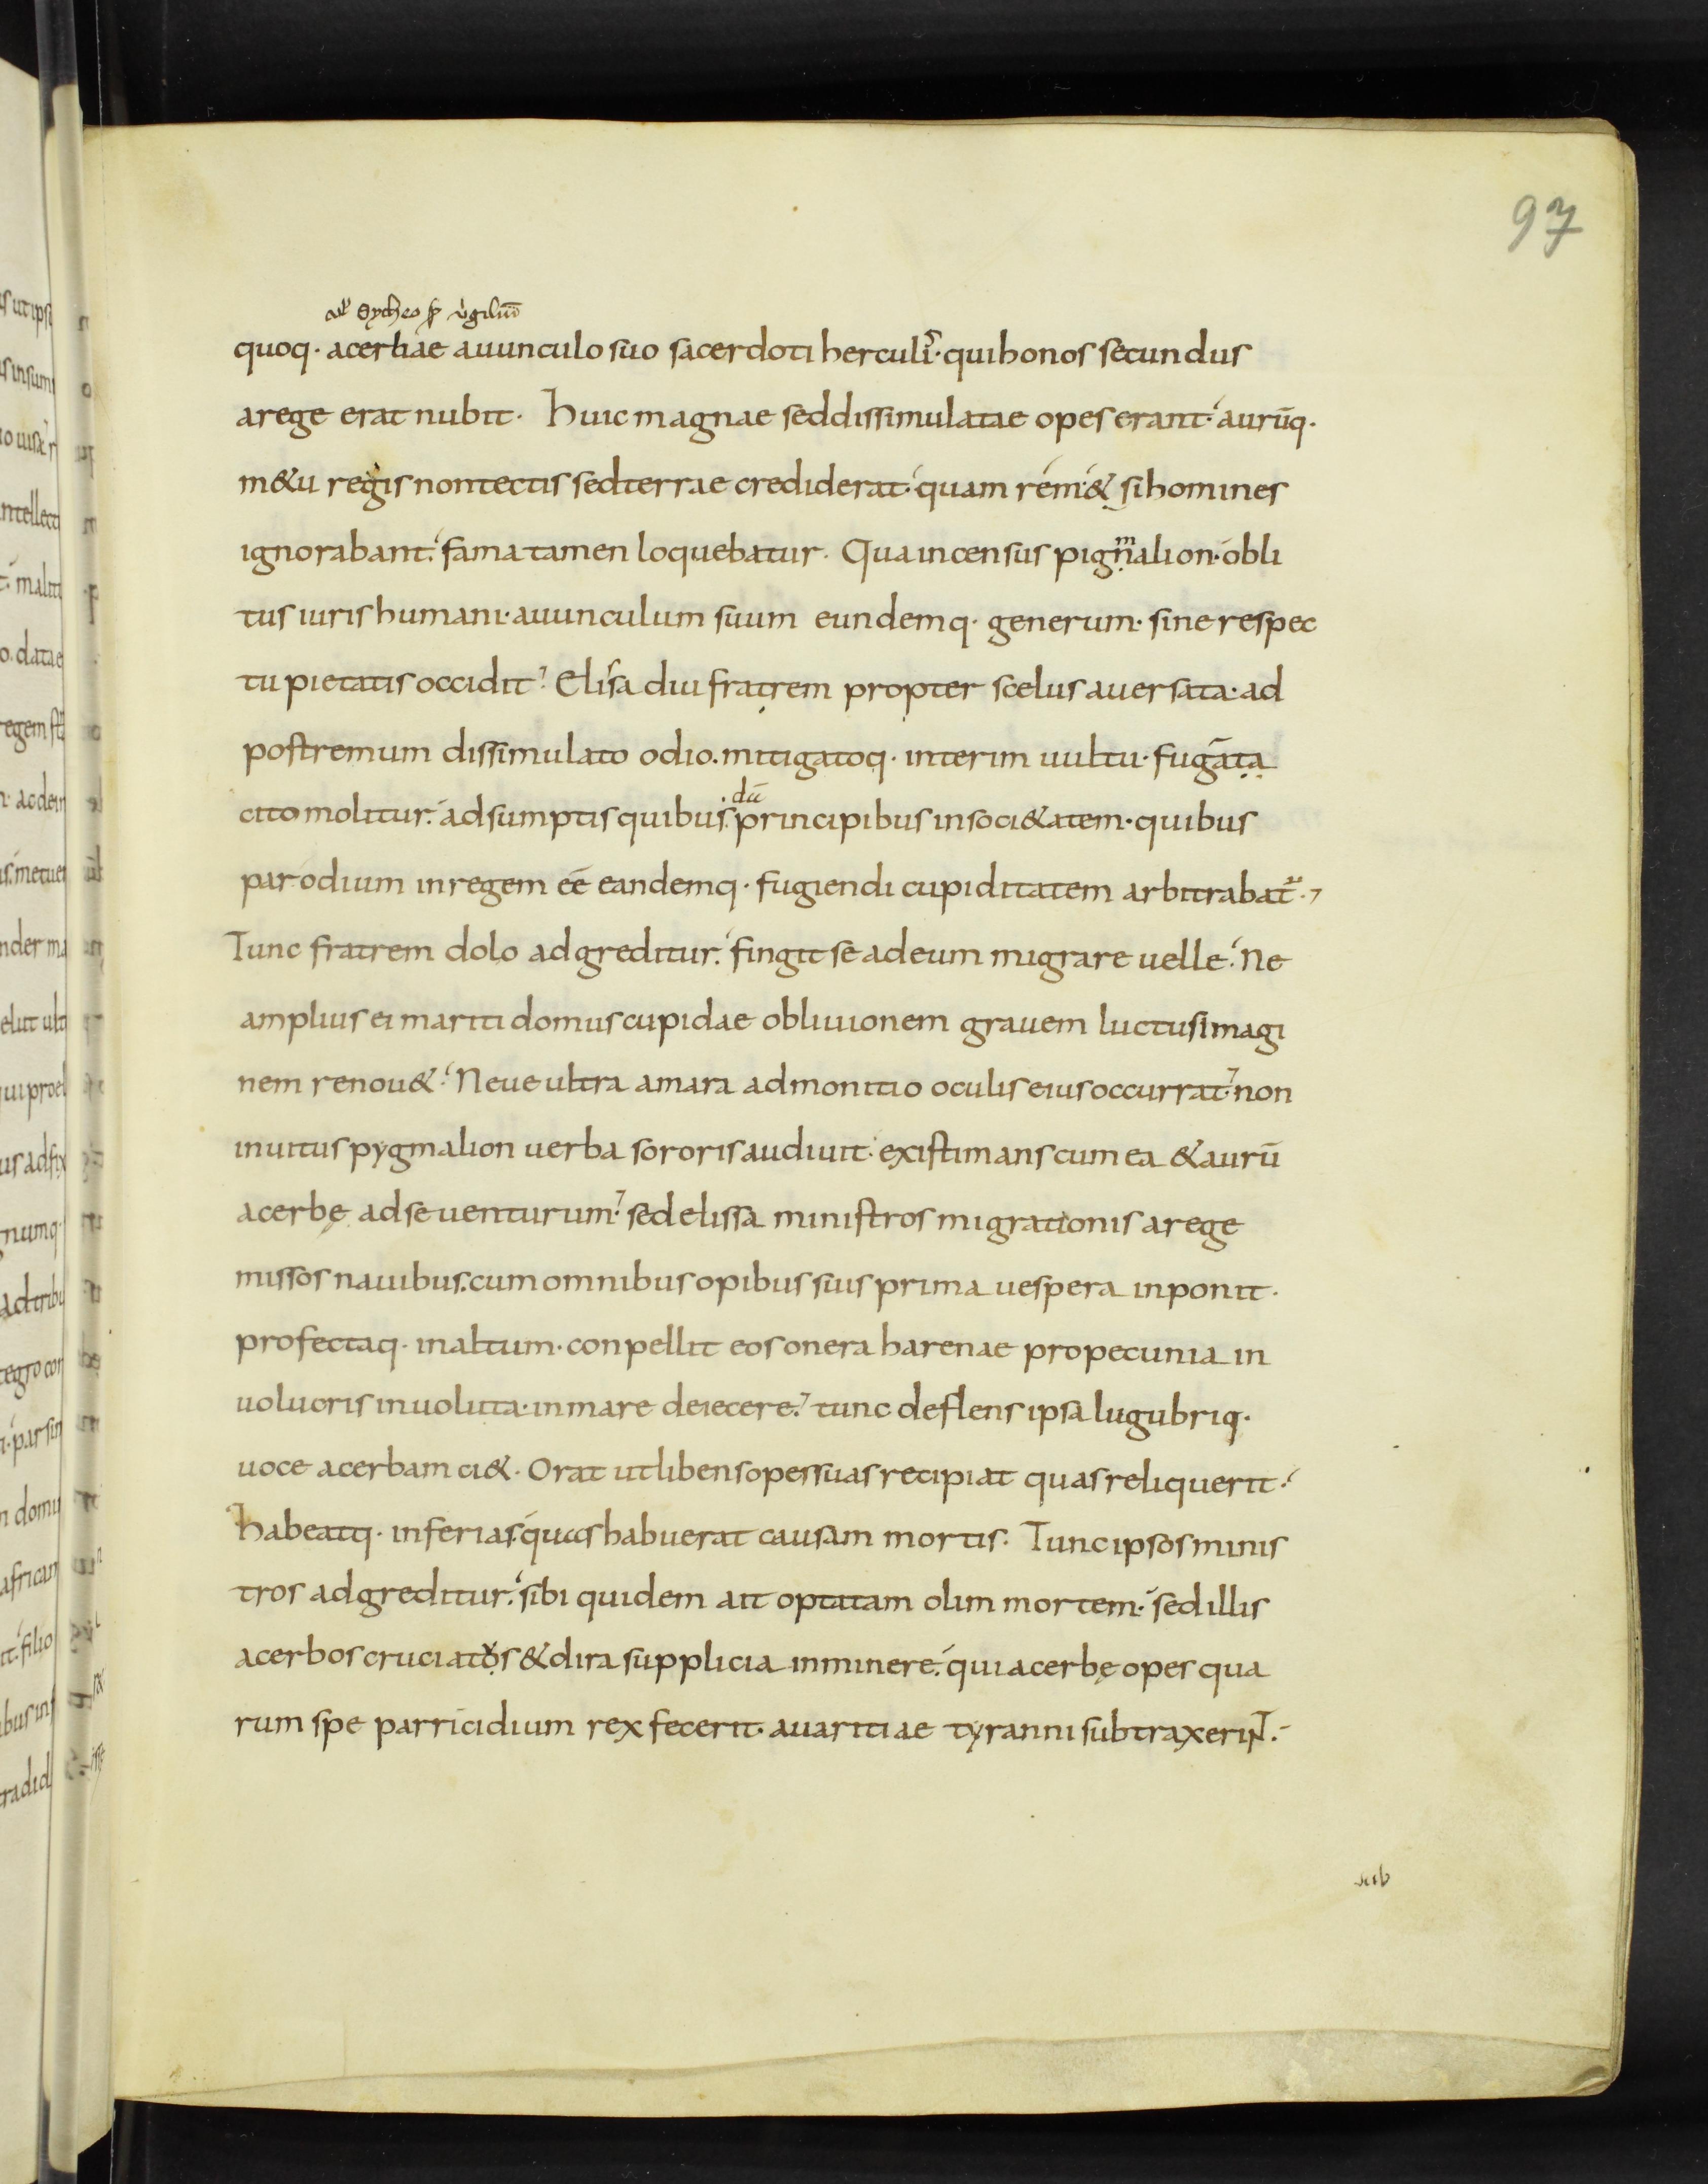 97
quoq· acerbae auunculo suo sacerdoti herculis· qui honos secundus
arege erat nubit· huic magnae sed dissimulatae opes erant· aurūq·
m&u regis non tectis sed terrae crediderat· quam rem & si homines
ignorabant· fama tamen loquebatur· Qua incensus pigmalion· obli
tus iuris humani· auunculum suum eundemq· generum· sine respec
tu pietatis occidit· Elissa diu fratrem propter scelus auersata· ad
postremum dissimulato odio. mitigatoq· interim uultu· fugāta
cito molitur· adsumptis quibusdā principibus in soci&atem· quibus
par odium in regem eē eandemq· fugiendi cupiditatem arbitrabat᷒·
Tunc fratrem dolo adgreditur· fingit se ad eum migrare uelle· Ne
amplius ei mariti domus cupidae obliuionem grauem luctus imagi
nem renou&· Neue ultra amara admonitio oculis eius occurrat· non
inuitus pygmalion uerba sororis audiuit· existimans cum ea & aurū
acerbę ad se uenturum· sed elissa ministros migrationis a rege
missos nauibus. cum omnibus opibus suis prima uespera inponit·
profectaq· in altum· conpellit eos onera harenae pro pecunia in
uolucris inuoluta· in mare deiecere· tunc deflens ipsa lugubriq·
uoce acerbam ci&· Orat ut libens opes suas recipiat quas reliquerit·
habeatq· inferias· quas habuerat causam mortis· Tunc ipsos minis
tros adgreditur· sibi quidem ait optatam olim mortem· sed illis
acerbos cruciatus & dira supplicia inminere· qui acerbę opes qua
rum spe parricidium rex fecerit· auaritiae tyranni subtraxerint·